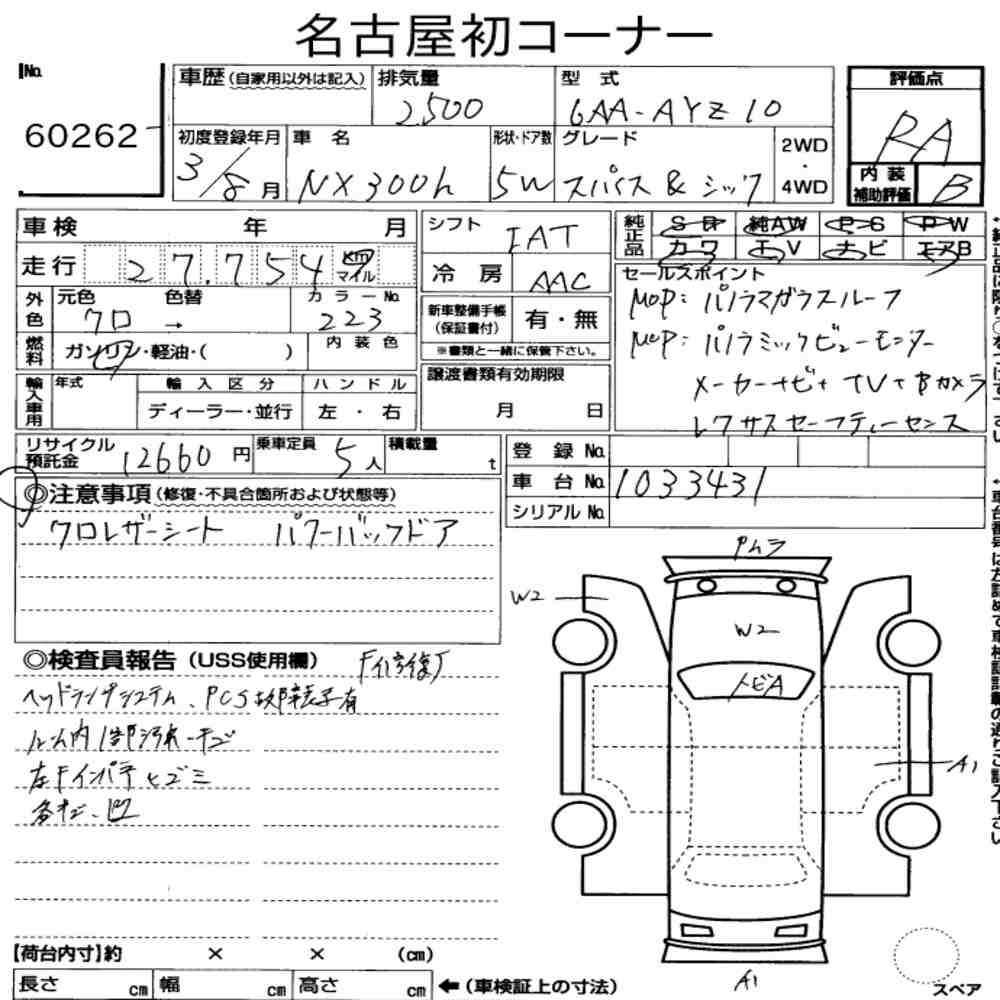 名古屋初コーナー
No. 60262
車歴（自家用以外は記入） 排気量 2500 型式 6AA-AYZ10
評価点 RA
初度登録年月 3/8月 車名 NX300h 形状・ドア数 5W グレード スパイス & シック 2WD・4WD
内装補助評価 B
車検 年 月
シフト IAT
純正品 SR 純AW PS PW
カワ TV ナビ エアB
走行 27,754 km マイル
冷房 AAC
セールスポイント
MOP：パノラマガラスルーフ
MOP：パノラミックビューモニター
メーカーナビ+TV+Bカメラ
レクサスセーフティーセンス
外色 元色 クロ → 色替 カラーNo. 223
新車整備手帳（保証書付） 有・無
※書類と一緒に保管下さい。
燃料 ガソリン・軽油・( ) 内装色
輸入車用 年式 輸入区分 ハンドル
ディーラー・並行 左・右
譲渡書類有効期限
月 日
リサイクル預託金 12660円 乗車定員 5人 積載量 t
登録No.
車台No. 1033431
シリアルNo.
◎注意事項（修復・不具合箇所および状態等）
クロレザーシート パワーバックドア
◎検査員報告（USS使用欄）
ヘッドランプシステム、PCS故障表示有
ルーム内1部汚れ・キズ
左Fインパネヒズミ
各キズ、凹
Pムラ
W2
W2
トビA
A1
A1
スペア
【荷台内寸】約 × × (cm)
長さ cm 幅 cm 高さ cm ←（車検証上の寸法）